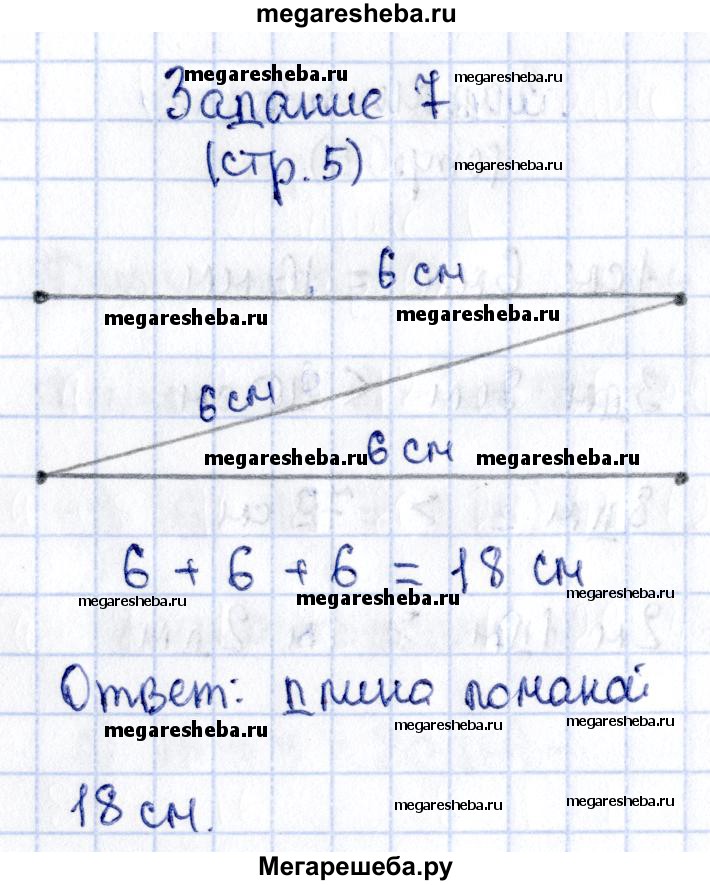 megaresheba.ru
megaresheba.ru megaresheba.ru
Задание 7
(стр. 5) megaresheba.ru
6 см
megaresheba.ru megaresheba.ru
6 см
6 см
megaresheba.ru megaresheba.ru
6 + 6 + 6 = 18 см
megaresheba.ru megaresheba.ru megaresheba.ru
Ответ: длина ломаной
megaresheba.ru megaresheba.ru megaresheba.ru
18 см.
megaresheba.ru megaresheba.ru
Мегарешеба.ру